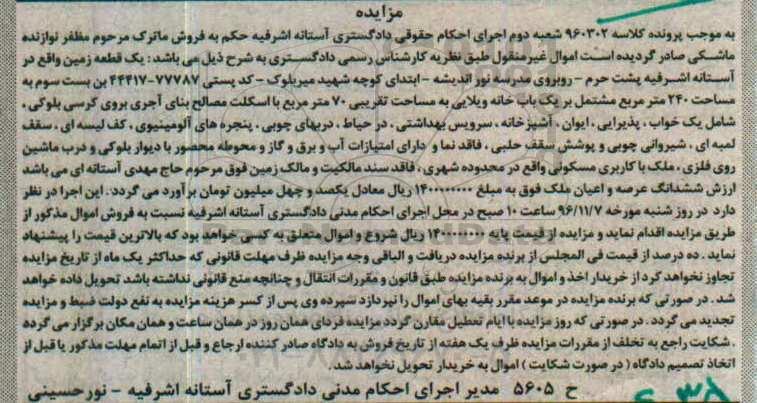 مزایده
به موجب پرونده کلاسه ۹۶۰۳۰۲ شعبه دوم اجرای احکام حقوقی دادگستری آستانه اشرفیه حکم به فروش ماترک مرحوم مظفر نوازنده
ماشکی صادر گردیده است اموال غیرمنقول طبق نظریه کارشناس رسمی دادگستری به شرح ذیل می باشد: یک قطعه زمین واقع در
آستانه اشرفیه پشت حرم - روبروی مدرسه نور اندیشه - ابتدای کوچه شهید میربلوک - کد پستی ۷۷۷۸۷-۴۴۴۱۷ بن بست سوم به
مساحت ۲۴۰ متر مربع مشتمل بر یک باب خانه ویلایی به مساحت تقریبی ۷۰ متر مربع با اسکلت مصالح بنای آجری بروی کرسی بلوکی ،
شامل یک خواب ، پذیرایی ، ایوان ، آشپزخانه ، سرویس بهداشتی ، در حیاط ، دربهای چوبی ، پنجره های آلومینیوی ، کف لیسه ای ، سقف
لمبه ای ، شیروانی چوبی و پوشش سقف حلبی ، فاقد نما و دارای امتیازات آب و برق و گاز و محوطه محصور با دیوار بلوکی و درب ماشین
روی فلزی ، ملک با کاربری مسکونی واقع در محدوده شهری ، فاقد سند مالکیت و مالک زمین فوق مرحوم حاج مهدی آستانه ای می باشد
ارزش ششدانگ عرصه و اعیان ملک فوق به مبلغ ۱۴۰۰۰۰۰۰۰۰ ریال معادل یکصد و چهل میلیون تومان برآورد می گردد. این اجرا در نظر
دارد در روز شنبه مورخه ۹۶/۱۱/۷ ساعت ۱۰ صبح در محل اجرای احکام مدنی دادگستری آستانه اشرفیه نسبت به فروش اموال مذکور از
طریق مزایده اقدام نماید و مزایده از قیمت پایه ۱۴۰۰۰۰۰۰۰۰ ریال شروع و اموال متعلق به کسی خواهد بود که بالاترین قیمت را پیشنهاد
نماید . ده درصد از قیمت فی المجلس از برنده مزایده دریافت و الباقی وجه مزایده ظرف مهلت قانونی که حداکثر یک ماه از تاریخ مزایده
تجاوز نخواهد کرد از خریدار اخذ و اموال به برنده مزایده طبق قانون و مقررات انتقال و چنانچه منع قانونی نداشته باشد تحویل داده خواهد
شد . در صورتی که برنده مزایده در موعد مقرر بقیه بهای اموال را نپردازد سپرده وی پس از کسر هزینه مزایده به نفع دولت ضبط و مزایده
تجدید می گردد . در صورتی که روز مزایده با ایام تعطیل مقارن گردد مزایده فردای همان روز در همان ساعت و همان مکان برگزار می گردد
. شکایت راجع به تخلف از مقررات مزایده ظرف یک هفته از تاریخ فروش به دادگاه صادر کننده ارجاع و قبل از اتمام مهلت مذکور یا قبل از
اتخاذ تصمیم دادگاه ( در صورت شکایت ) اموال به خریدار تحویل نخواهد شد .
ح ۵۶۰۵ مدیر اجرای احکام مدنی دادگستری آستانه اشرفیه - نورحسینی